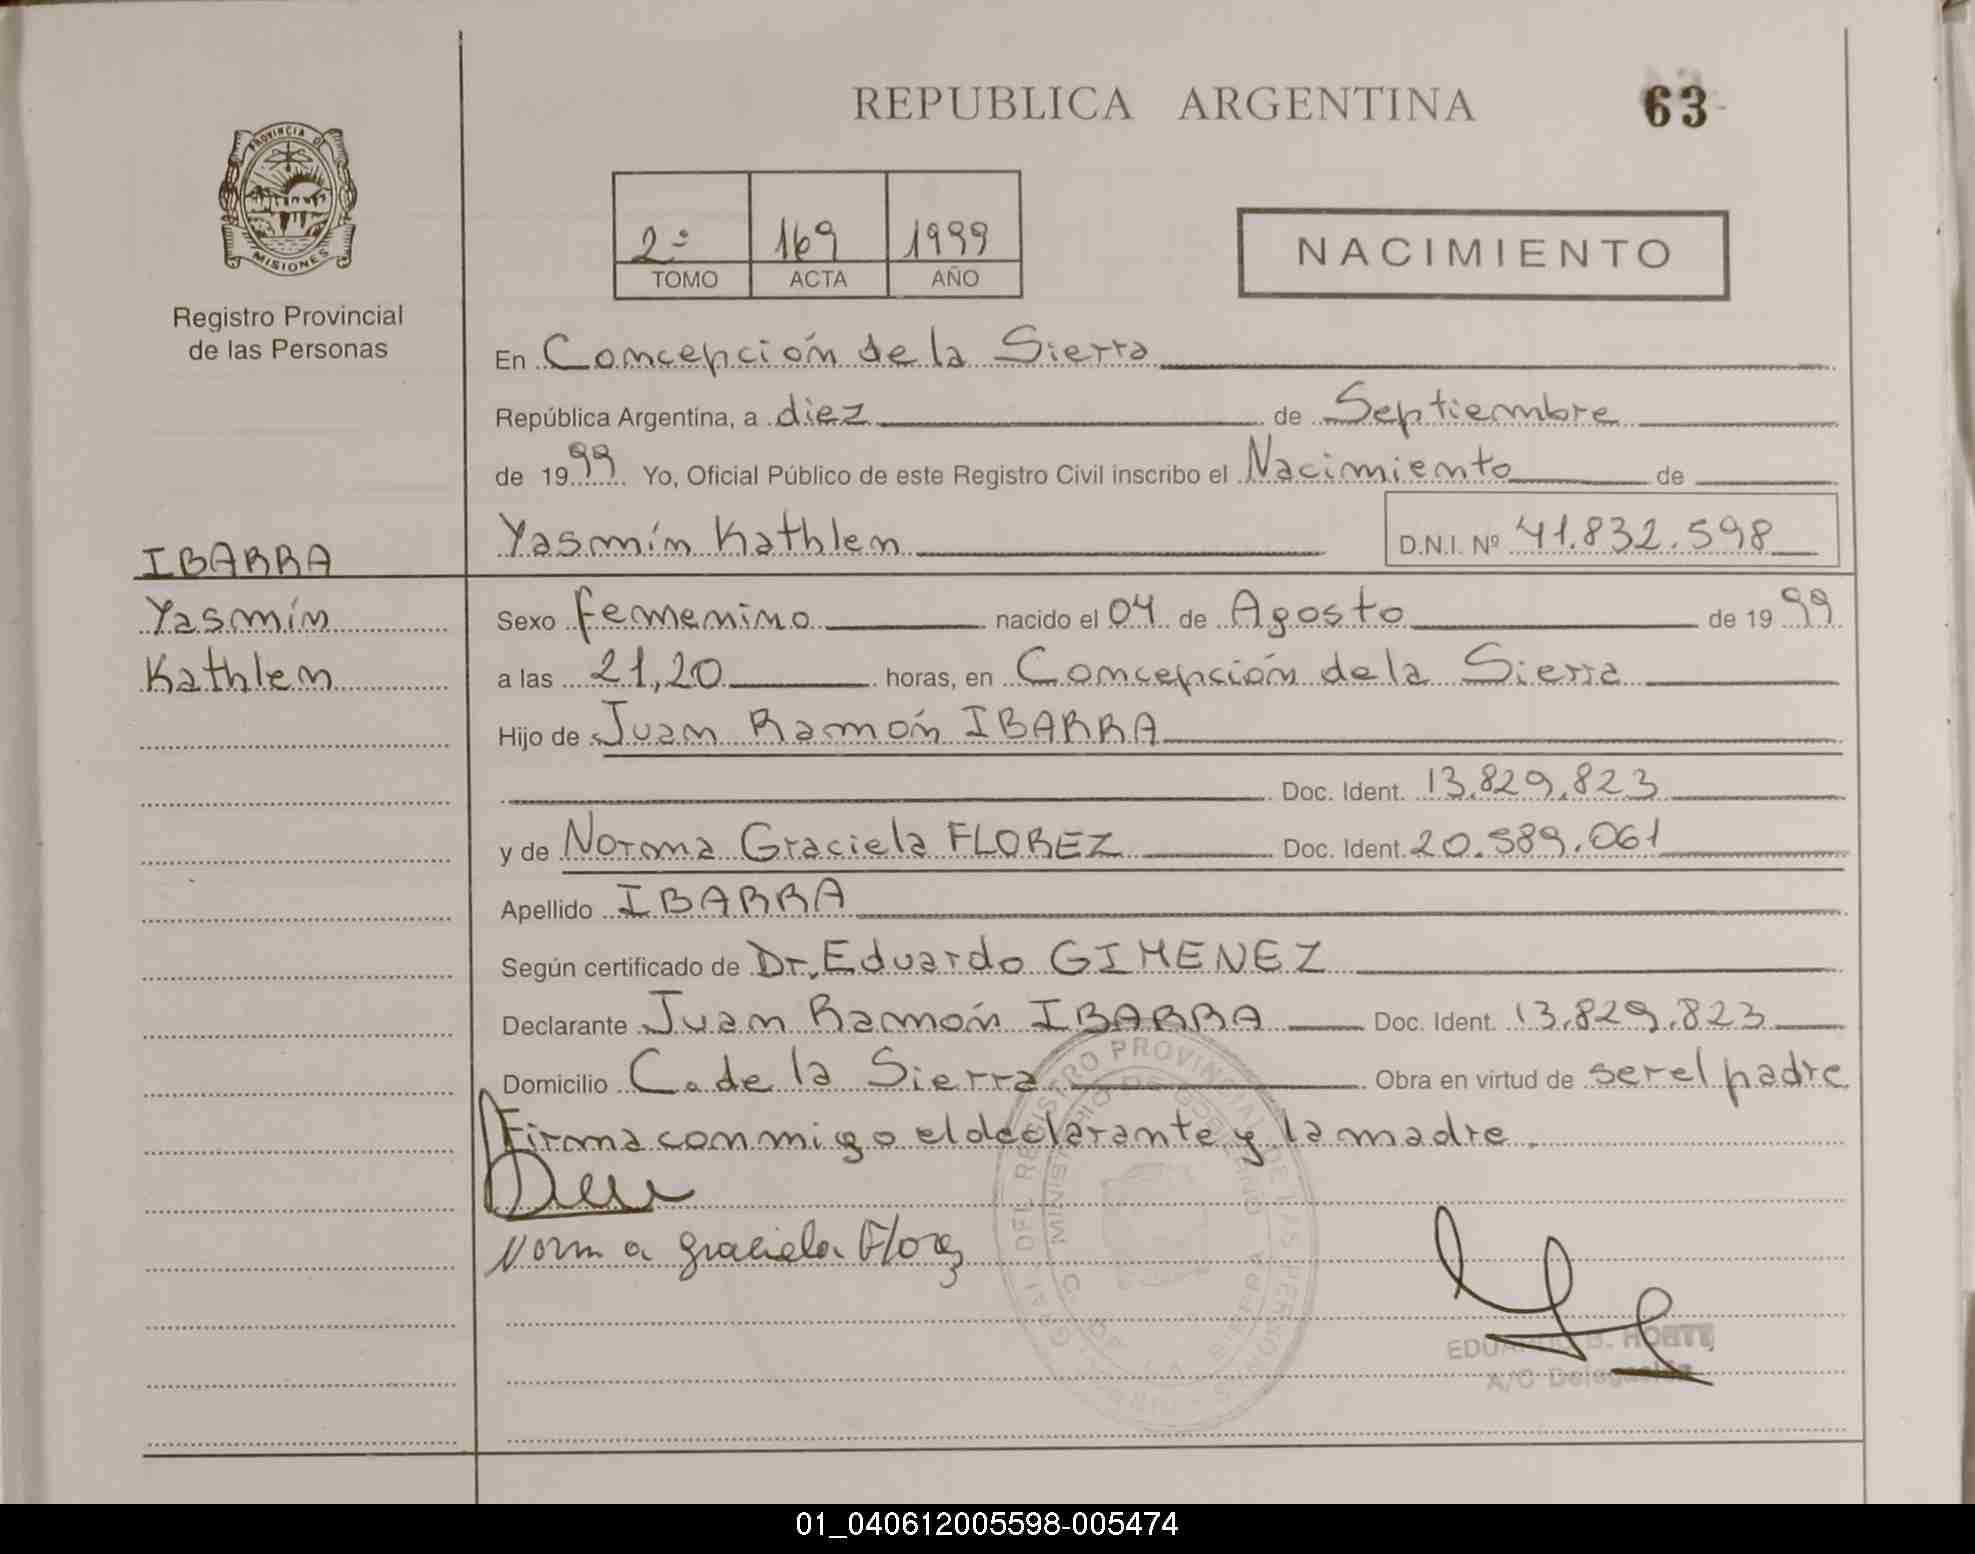 REPUBLICA ARGENTINA
63
PROVINCIA DE
MISIONES
Registro Provincial
de las Personas
2º 169 1999
TOMO ACTA AÑO
NACIMIENTO
En Concepción de la Sierra
República Argentina, a diez de Septiembre
de 1999 Yo, Oficial Público de este Registro Civil inscribo el Nacimiento de
Yasmín Kathlen D.N.I. Nº 41.832.598
IBARRA
Yasmín
Kathlen
Sexo femenino nacido el 04 de Agosto de 1999
a las 21,20 horas, en Concepción de la Sierra
Hijo de Juan Ramón IBARRA
Doc. Ident. 13.829.823
y de Norma Graciela FLOREZ Doc. Ident. 20.589.061
Apellido IBARRA
Según certificado de Dr. Eduardo GIMENEZ
Declarante Juan Ramón IBARRA Doc. Ident. 13.829.823
Domicilio C. de la Sierra Obra en virtud de ser el padre
Firma conmigo el declarante y la madre.
Norma graciela Florez
REGISTRO PROVINCIAL DE LAS PERSONAS
MINISTERIO DE GOBIERNO
C. DE LA SIERRA
A/C Delegación
01_040612005598-005474